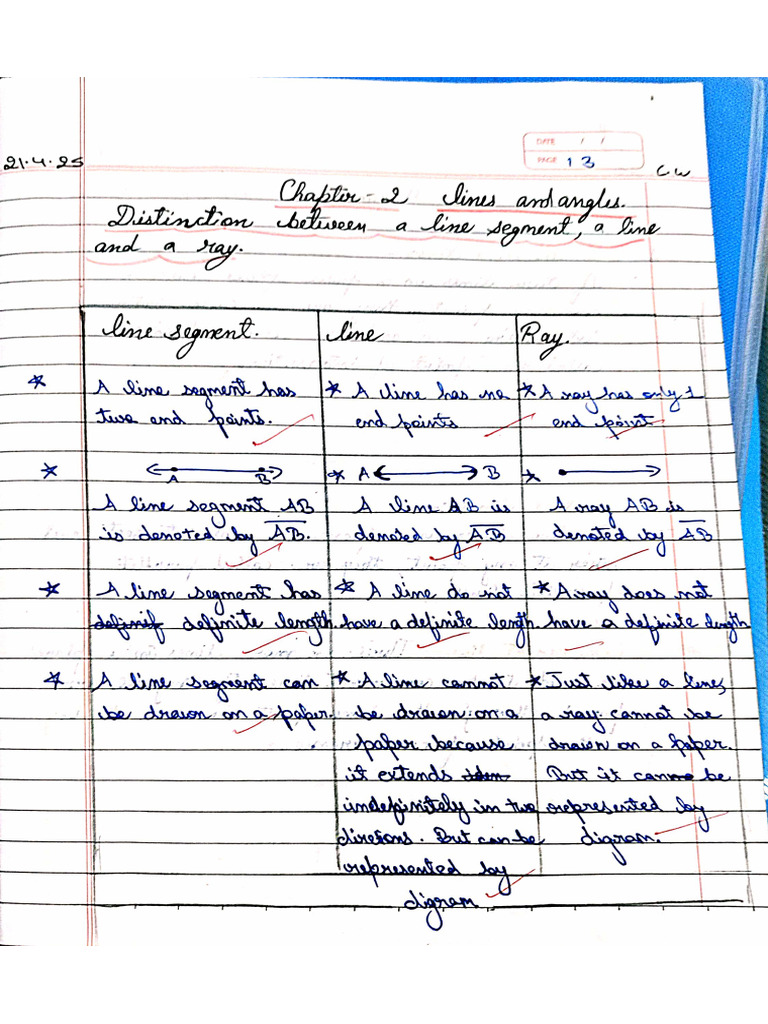 21.4.25
DATE / /
PAGE 13
C W
Chapter-2 lines and angles.
Distinction between a line segment, a line
and a ray.
line segment.
A line segment has
two end points.
A B
A line segment AB
is denoted by AB.
A line segment has
definif definite length.
A line segment can
be drawn on a paper.
line
A line has no
end points
A B
A line AB is
denoted by AB
A line do not
have a definite length.
A line cannot
be drawn on a
paper because
it extends
indefinitely in two
diretions. But can be
represented by
digram
Ray.
A ray has only 1
end point
A ray AB is
denoted by AB
A ray does not
have a definite length
Just like a line,
a ray cannot be
drawn on a paper.
But it can be
represented by
digram.